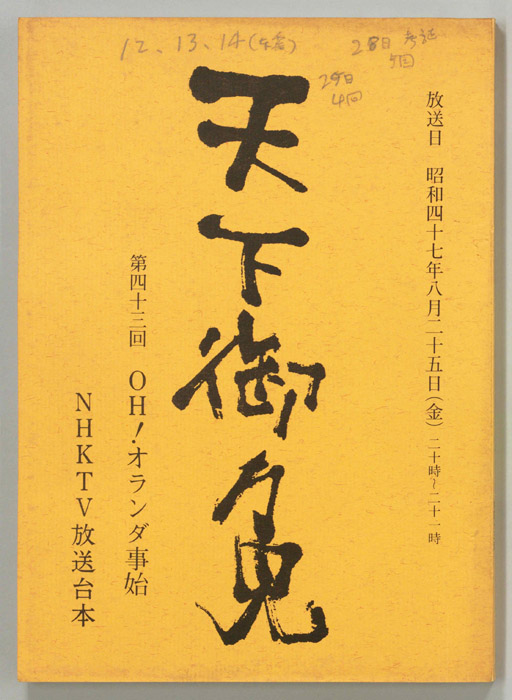 12、13、14
28日
5回
29日
4回
放送日 昭和四十七年八月二十五日(金)二十時~二十一時
天下御免
第四十三回 OH!オランダ事始
NHKTV放送台本